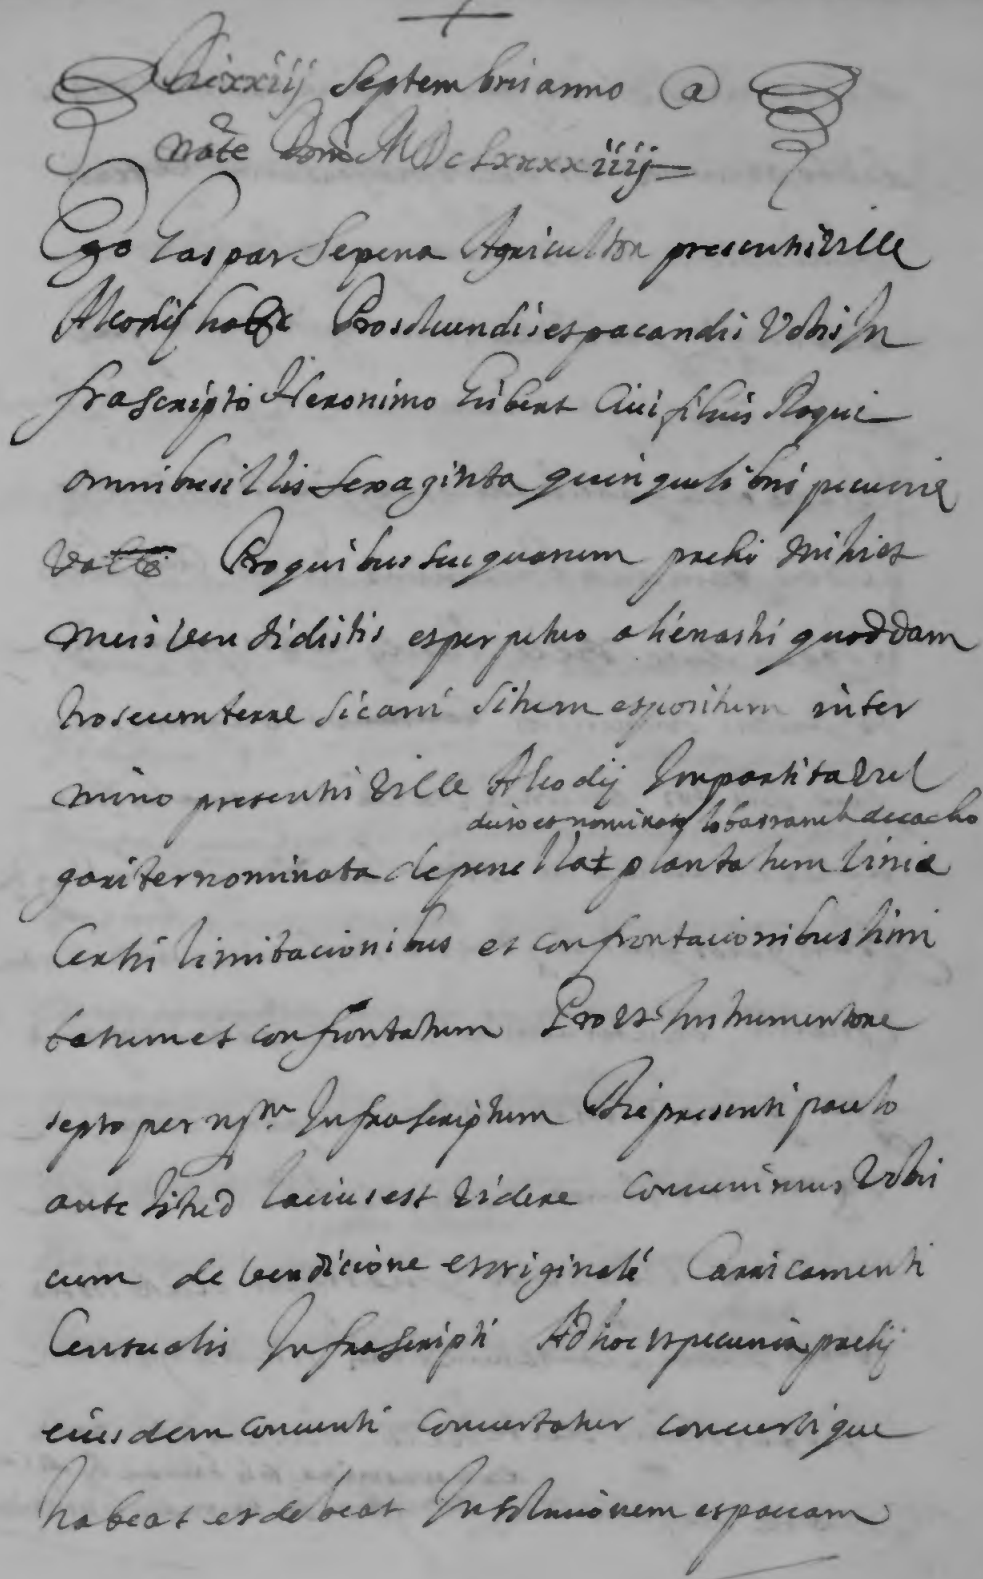 Die xxiiij Septembris anno a
nate Dom MDcLxxxxiiij
Ego Gaspar Sepena Agricultor presentis ville
Alcodij habr Pro solvendis et pacandis Vobis In
frascripto Hieronimo Gisbert Civi filius Roqui
omnibus illis sexaginta quinque libris pecunie
Valle Pro quibus seu quarum pretii mihi et
meis vendidistis et perpetuo alienastis quoddam
troseum terre sicani situm et positum in ter
mino presentis ville Alcodij In partita vul
dicto et nominato lo barranch de cacho
gariter nominata de penella + plantatum vinie
Certis limitacionibus et confrontacionibus limi
tatum et confrontatum Prout Instrumento re
cepto per nott. Infrascriptum Die presenti paulo
ante istud lacius est videre Convenimus Vobis
cum de vendicione et originale Carricamenti
Censualis Infrascripti Ad hoc ut pecunia pretij
eiusdem conventi convertatur convertique
habeat et debeat In solucionem et paccam